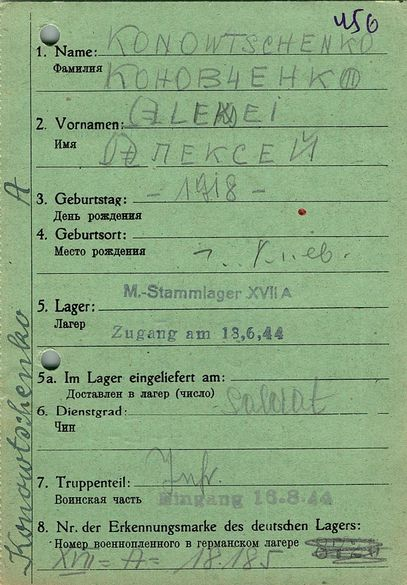 456
1. Name: KONOWTSCHENKO
Фамилия КОНОВЧЕНКО
2. Vornamen: ALEXEI
Имя АЛЕКСЕЙ
3. Geburtstag: - 1918 -
День рождения
4. Geburtsort:
Место рождения г. Киев.
M.-Stammlager XVII A
5. Lager:
Лагерь Zugang am 18,6,44
5a. Im Lager eingeliefert am:
Доставлен в лагер (число)
6. Dienstgrad: Soldat
Чин
7. Truppenteil: Inf.
Воинская часть Eingang 16.8.44
8. Nr. der Erkennungsmarke des deutschen Lagers:
Номер военнопленного в германском лагере
XVII = A = 18.185
Konowtschenko A